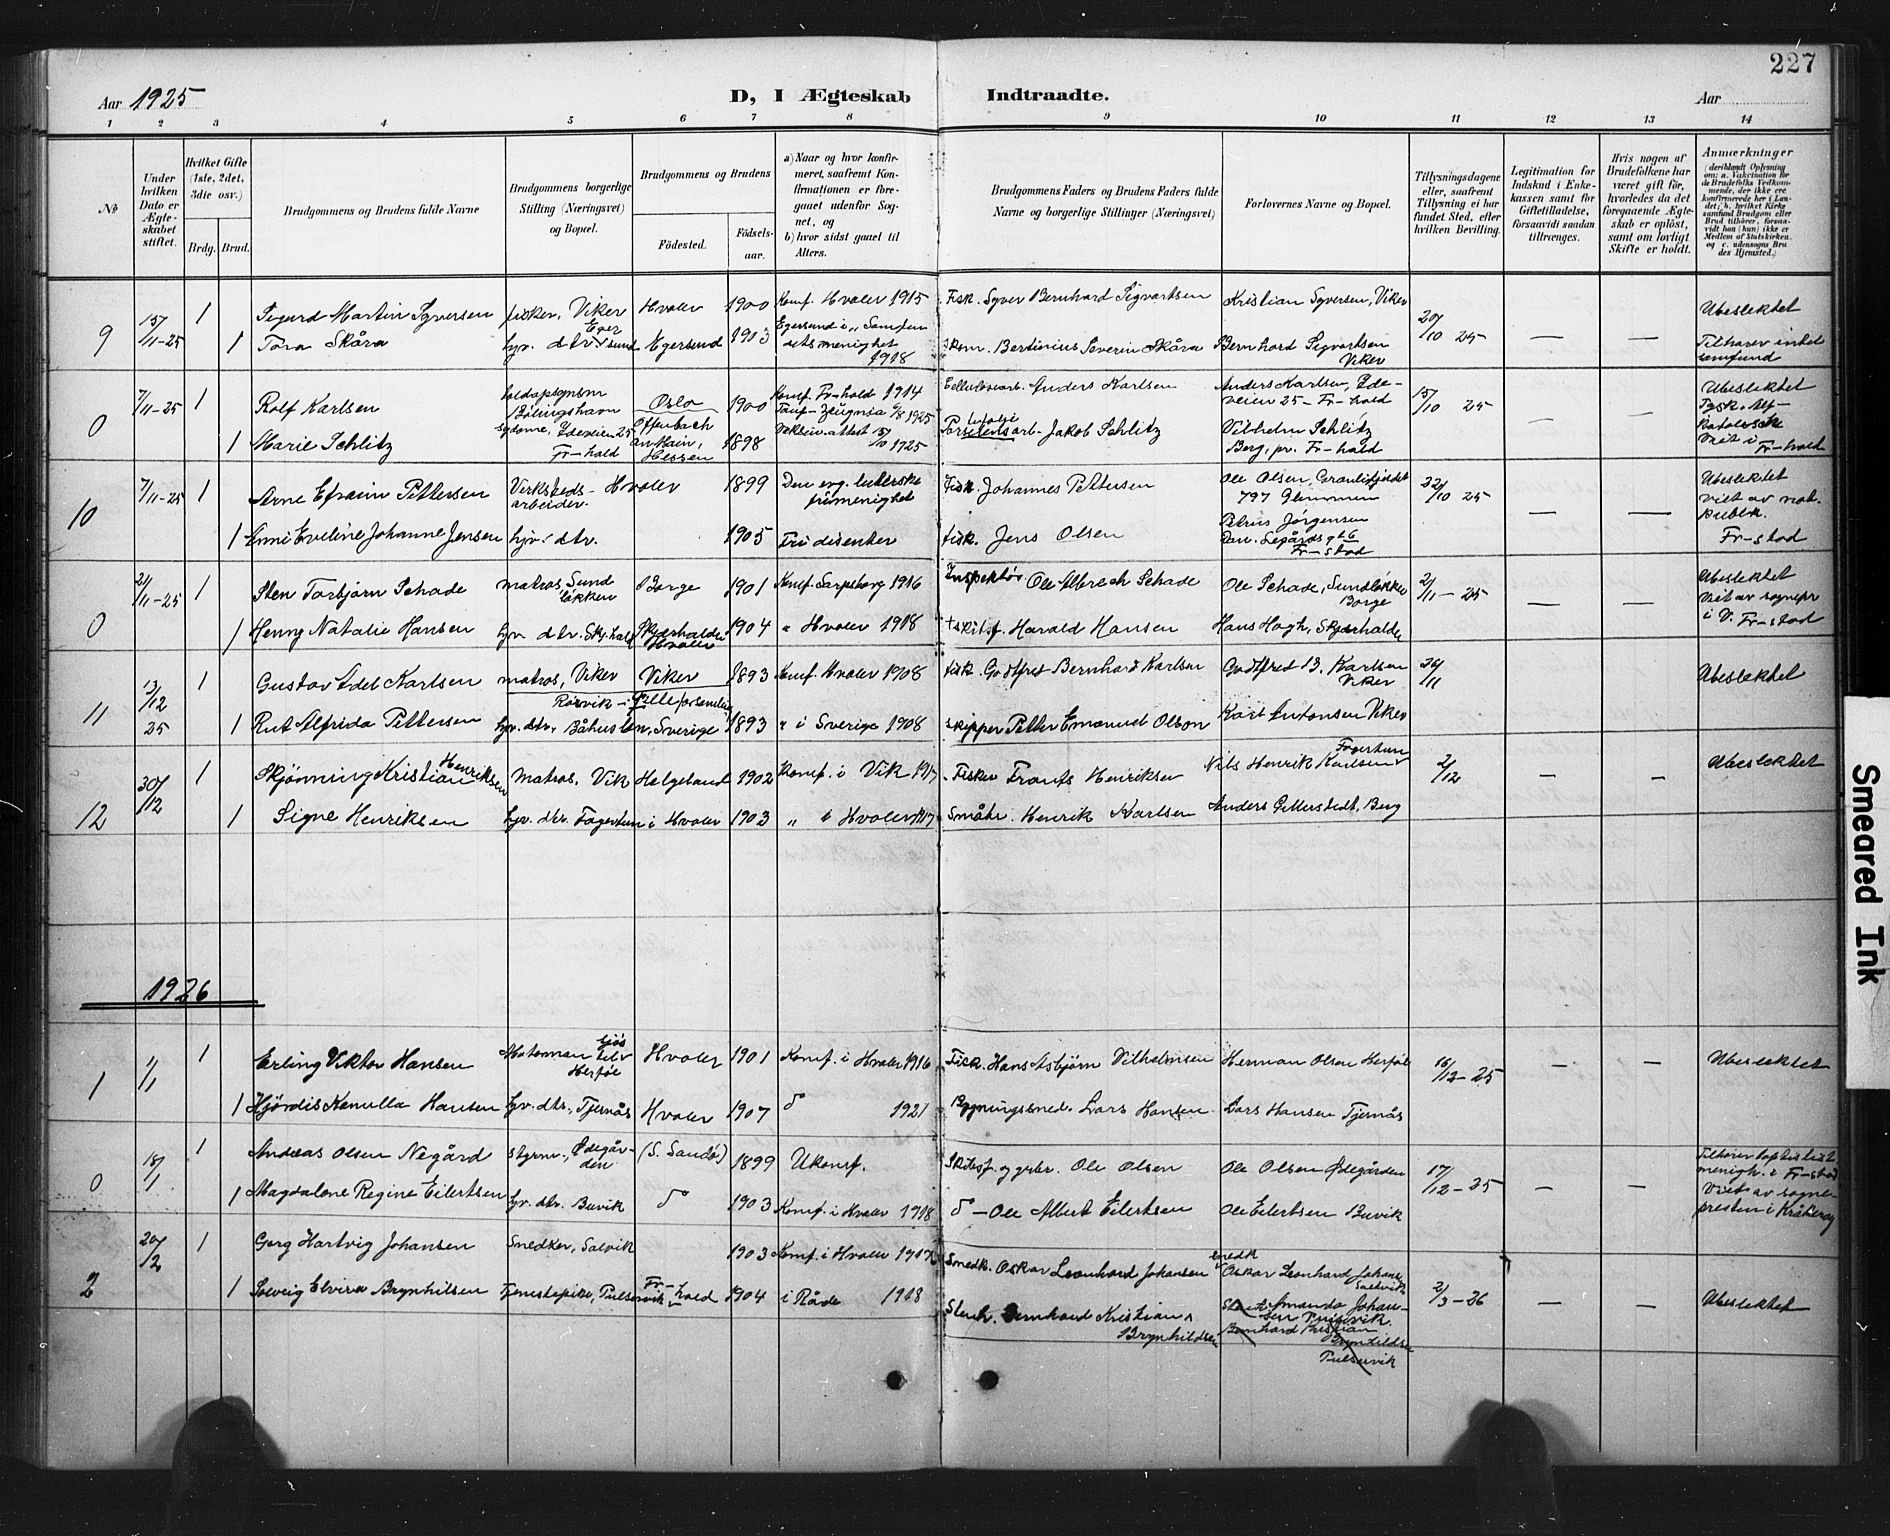 227
Aar 1925
D, I Ægteskab Indtraadte.
Aar
1 2 3 4 5 6 7 8 9 10 11 12 13 14
No
Under hvilken Dato er Ægteskabet stiftet.
Hvilket Gifte (1ste, 2det, 3die osv.)
Brdg. Brud.
Brudgommens og Brudens fulde Navne
Brudgommens borgerlige Stilling (Næringsvei) og Bopæl.
Brudgommens og Brudens
Födested.
Födselsaar.
a) Naar og hvor konfirmeret, saafremt Konfirmationen er foregaaet udenfor Sognet, og
b) hvor sidst gaaet til Alters.
Brudgommens Faders og Brudens Faders fulde Navne og borgerlige Stillinger (Næringsvei)
Forlovernes Navne og Bopæl.
Tillysningsdagene eller, saafremt Tillysning ei har fundet Sted, efter hvilken Bevilling.
Legitimation for Indskud i Enkekassen samt for Giftetilladelse, forsaavidt saadan tiltrænges.
Hvis nogen af Brudefolkene har været gift för, hvorledes da det foregaaende Ægteskab er oplöst, samt om lovligt Skifte er holdt.
Anmærkninger (deriblandt Oplysning om: a. Vaccination for de Brudefolks Vedkommende, der ikke ere konfirmerede her i Landet; b. hvilket Kirkesamfund Brudgom eller Brud tilhörer, forsaavidt han (hun) ikke er Medlem af Statskirken, og c. udensogns Brudes Hjemsted.)
9 15/11-25 1 Sigurd Martin Syversen fisker, Viker Hvaler 1900 Konf. Hvaler 1915 Fisk. Syver Bernhard Sigvartsen Kristian Syversen, Viker 20/10 25 — — Ubeslektet
1 Tora Skåra hjv. dtr. Egersund Egersund 1903 Egersund i "Samfundets menighet 1918 Skom. Bertinius Severin Skåra Bernhard Sigvartsen Viker Tilhører intet samfund
0 7/11-25 1 Rolf Karlsen Oslo 1900 Konf. Fr-hald 1914 Cellulosearb. Anders Karlsen Anders Karlsen, Ideveien 25 - Fr-hald 15/10 25 — — Ubeslektet
1 Marie Schlitz Offenbach an Main, Hessen 1898 Jakob Schlitz Vilhelm Schlitz Berg, pr. Fr-hald Fr-hald
10 7/11-25 1 Arne Efraim Pettersen Verkstedsarbeider Hvaler 1899 Den evg. lutherske frimenighet Fisk. Johannes Pettersen Ole Olsen, 797 Glemmen 22/10 25 — — Ubeslektet
1 Enni Eveline Johanne Jensen hjv. dtr. 1905 Fri disenter fisk. Jens Olsen Petrus Jørgensen Fr-stad Viet av not. publk. Fr-stad
0 21/11-25 1 Sten Torbjørn Schade matros, Sundløkken Borge 1901 Konf. Sarpsborg 1916 Inspektør Ole Albrech Schade Ole Schade, Sundløkken Borge 2/11-25 — — Ubeslektet
1 Henny Natalie Hansen hjv. dtr. Skj.hald Skjærhalden Hvaler 1904 " Hvaler 1918 +skibsf. Harald Hansen Hans Høgh, Skjærhalden Viet av sognepr i V. Fr-stad
11 13/12 25 1 Gustav Adel Karlsen matros, Viker Viker 1893 Konf. Hvaler 1908 fisk. Godtfred Bernhard Karlsen Godtfred B. Karlsen Viker 26/11 Ubeslektet
1 Rut Alfrida Pettersen hjv. dtr. Båhuslen, Sverige 1893 " i Sverige 1908 skipper Petter Emanuel Olson Karl Antonsen Viker
12 30/12 1 Skjønning Kristian Henriksen Matros, Vik Helgeland 1902 Konf. i Vik 1917 Fisker Frants Henriksen Nils Henrik Karlsen Fagertun 2/12 — — Ubeslektet
1 Signe Henriksen hjv. dtr. Fagertun i Hvaler 1903 " i Hvaler 1917 Småbr. Henrik Karlsen Anders Gillerstedt, Berg
1926
1 1/1 1 Erling Viktor Hansen Herføl Hvaler 1901 Konf. i Hvaler 1916 Fisk. Hans Asbjørn Vilhelmsen Herman Olsen Herføl 16/12-25 — — Ubeslektet
1 Hjørdis Kamilla Hansen hjv. dtr., Tjernås Hvaler 1907 do 1921 Bygningssned. Lars Hansen Lars Hansen Tjernås
0 18/1 1 Andreas Olsen Negård styrm., Ødegården (S. Sandø) 1899 Ukonf. Skibsf. og grbr. Ole Olsen Ole Olsen Ødegården 17/12-25 — — Tilhører baptistmenigh. i Fr-stad
1 Magdalene Regine Eilertsen hjv. dtr. Buvik do 1903 Konf. i Hvaler 1918 do - Ole Albert Eilertsen Ole Eilertsen Buvik Viet av sognepresten i Kråkerøy
2 20/12 1 Georg Hartvig Johansen Snedker, Salvik 1903 Konf. i Hvaler 1917 Snedk. Oskar Leonhard Johansen snedk Oskar Leonhard Johansen 2/3-26 — — Ubeslektet
1 Solveig Elvira Brynhilsen Tjenestepike, Pulservik Fr-hald 1904 i Råde 1918 Stenh. Bernhard Kristian Brynhildsen Amanda Johansen
Bernhard Kristian Brynhildsen Pulservik
Smeared Ink